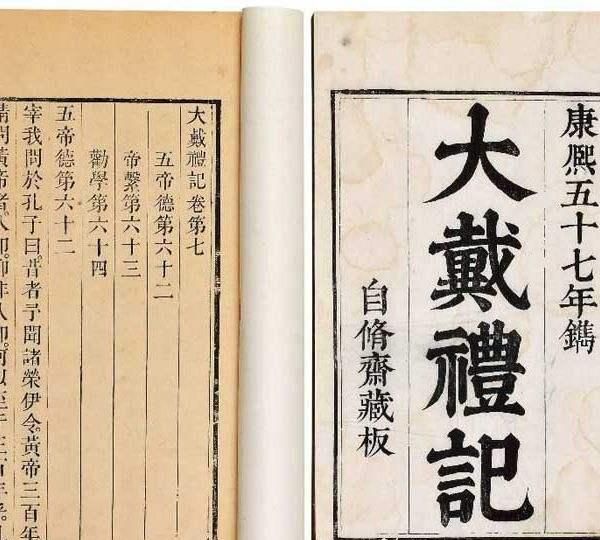 康熙五十七年鐫
大戴禮記
自脩齋藏板
大戴禮記卷第七
五帝德第六十二
帝繫第六十三
勸學第六十四
五帝德第六十二
宰我問於孔子曰。昔者予聞諸榮伊令。黃帝三百年
請問黃帝者人